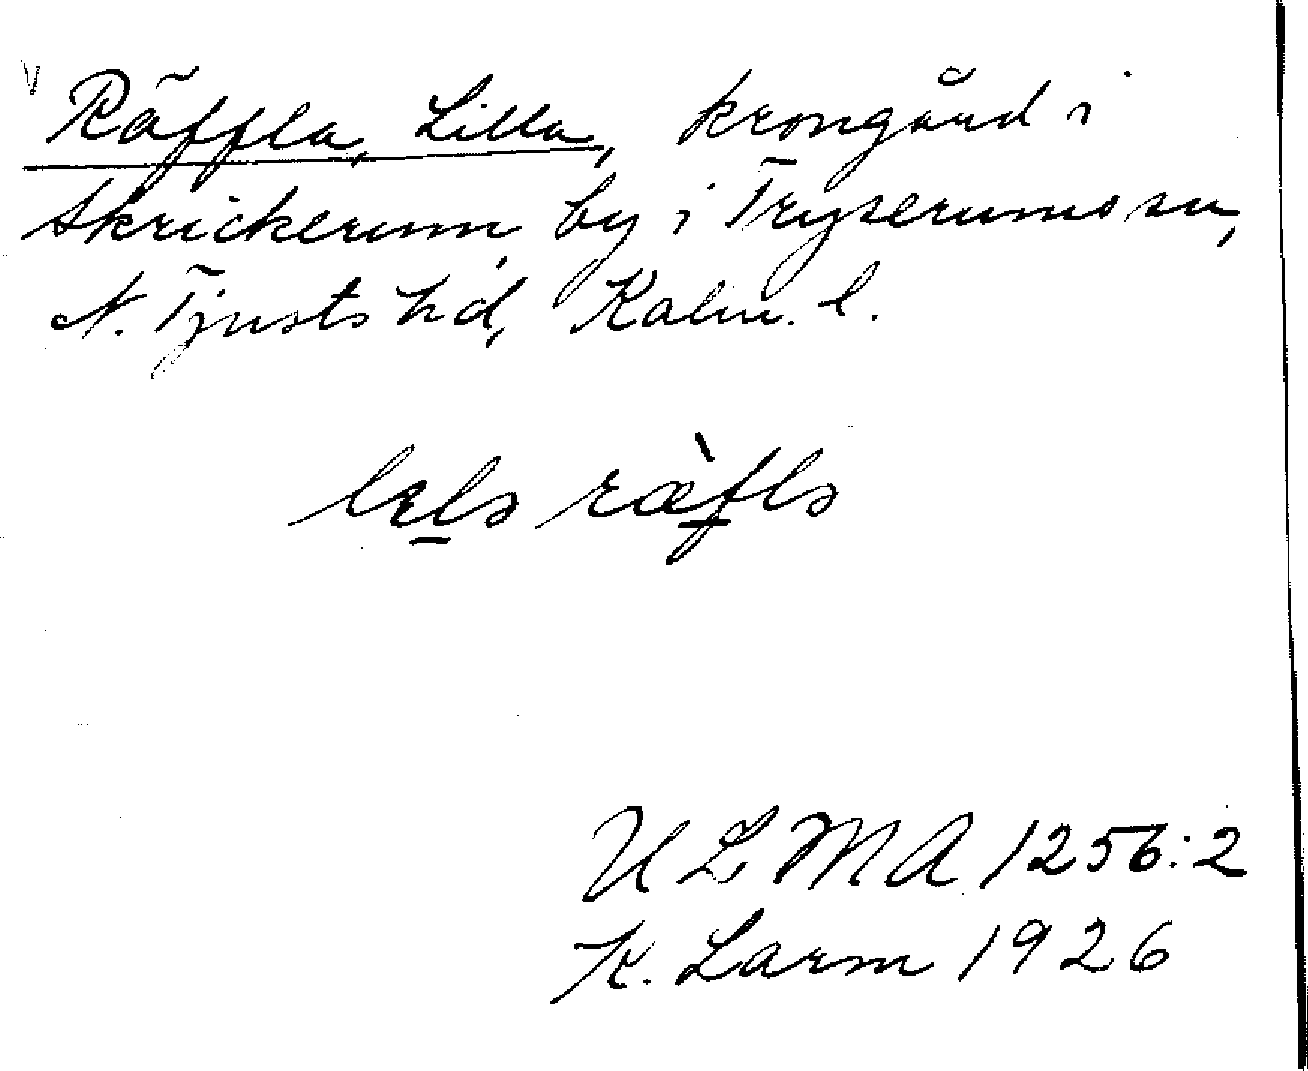 Räffla, Lilla, krongård i
Skrickerum, by i Tryserums sn,
N. Tjusts hd, Kalm. l.
lɛlə ræ̀flə
ULMA 1256:2
K. Larm 1926